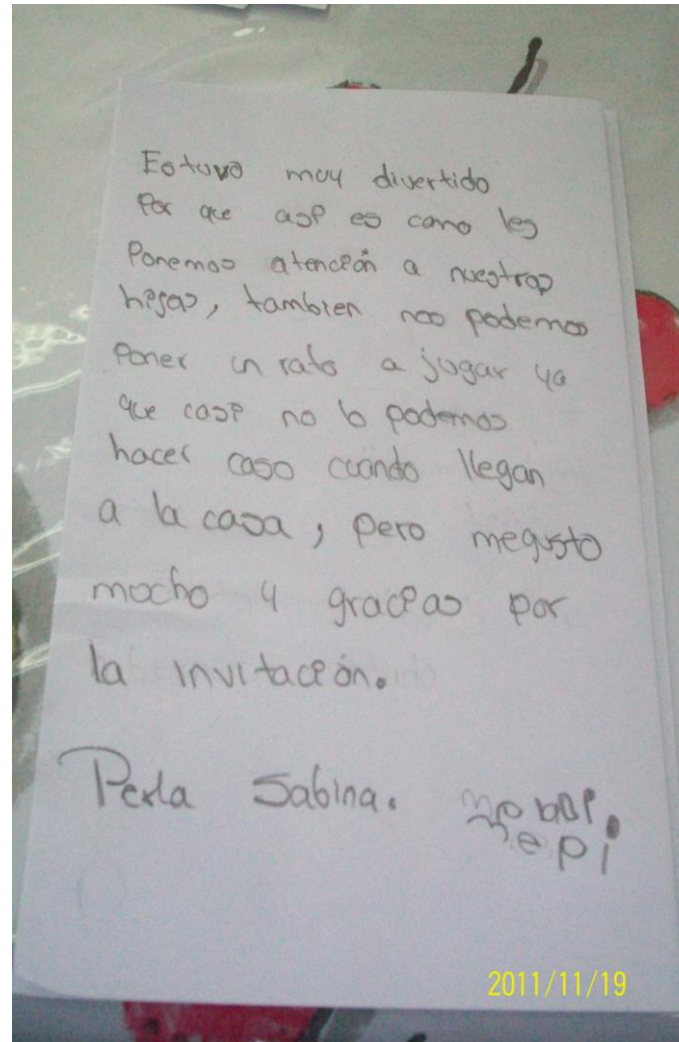 Estuvo muy divertido
Por que así es como les
Ponemos atención a nuestras
hijas, tambien nos podemos
Poner un rato a jugar ya
que casi no lo podemos
hacer caso cuando llegan
a la casa, pero megusto
mucho y gracias por
la invitación.
Perla Sabina.
2011/11/19